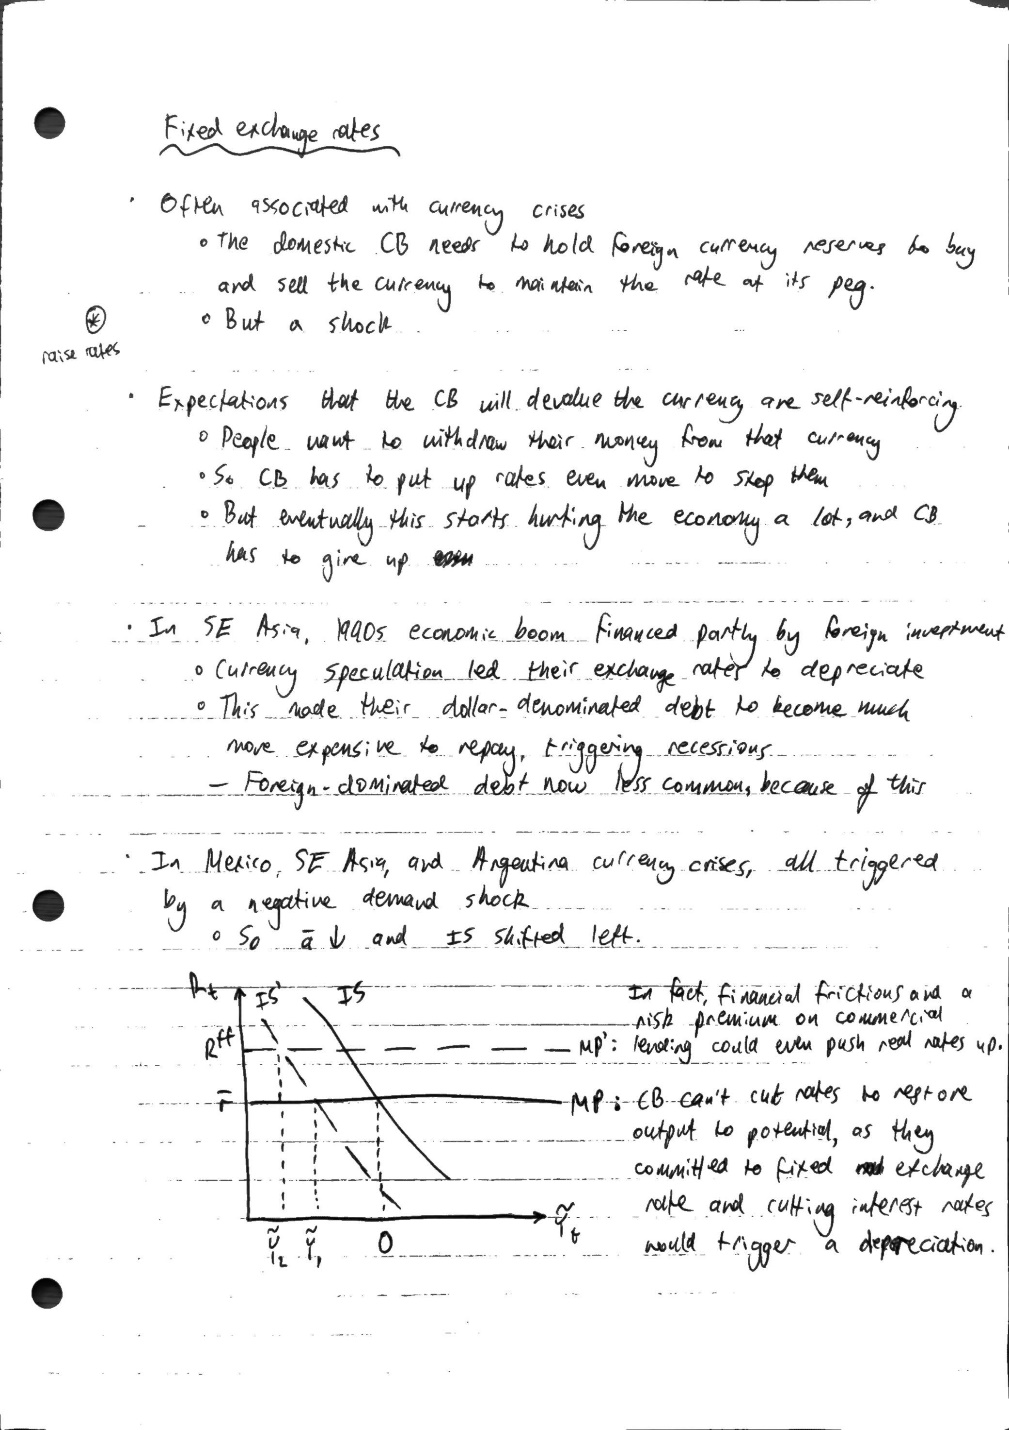 Fixed exchange rates
· Often associated with currency crises
∘ The domestic CB needs to hold foreign currency reserves to buy
and sell the currency to maintain the rate at its peg.
∘ But a shock
⊛
raise rates
· Expectations that the CB will devalue the currency are self-reinforcing.
∘ People want to withdraw their money from that currency
∘ So CB has to put up rates even more to stop them
∘ But eventually this starts hurting the economy a lot, and CB
has to give up
· In SE Asia, 1990s economic boom financed partly by foreign investment
∘ Currency speculation led their exchange rates to depreciate
∘ This made their dollar-denominated debt to become much
more expensive to repay, triggering recessions
– Foreign-dominated debt now less common, because of this
· In Mexico, SE Asia, and Argentina currency crises, all triggered
by a negative demand shock
∘ So ā ↓ and IS shifted left.
R_t
IS'
IS
R^ff
r̄
Ỹ_2
Ỹ_1
0
Ỹ_t
In fact, financial frictions and a
risk premium on commercial
MP': lending could even push real rates up.
MP: CB can't cut rates to restore
output to potential, as they
committed to fixed exchange
rate and cutting interest rates
would trigger a depreciation.